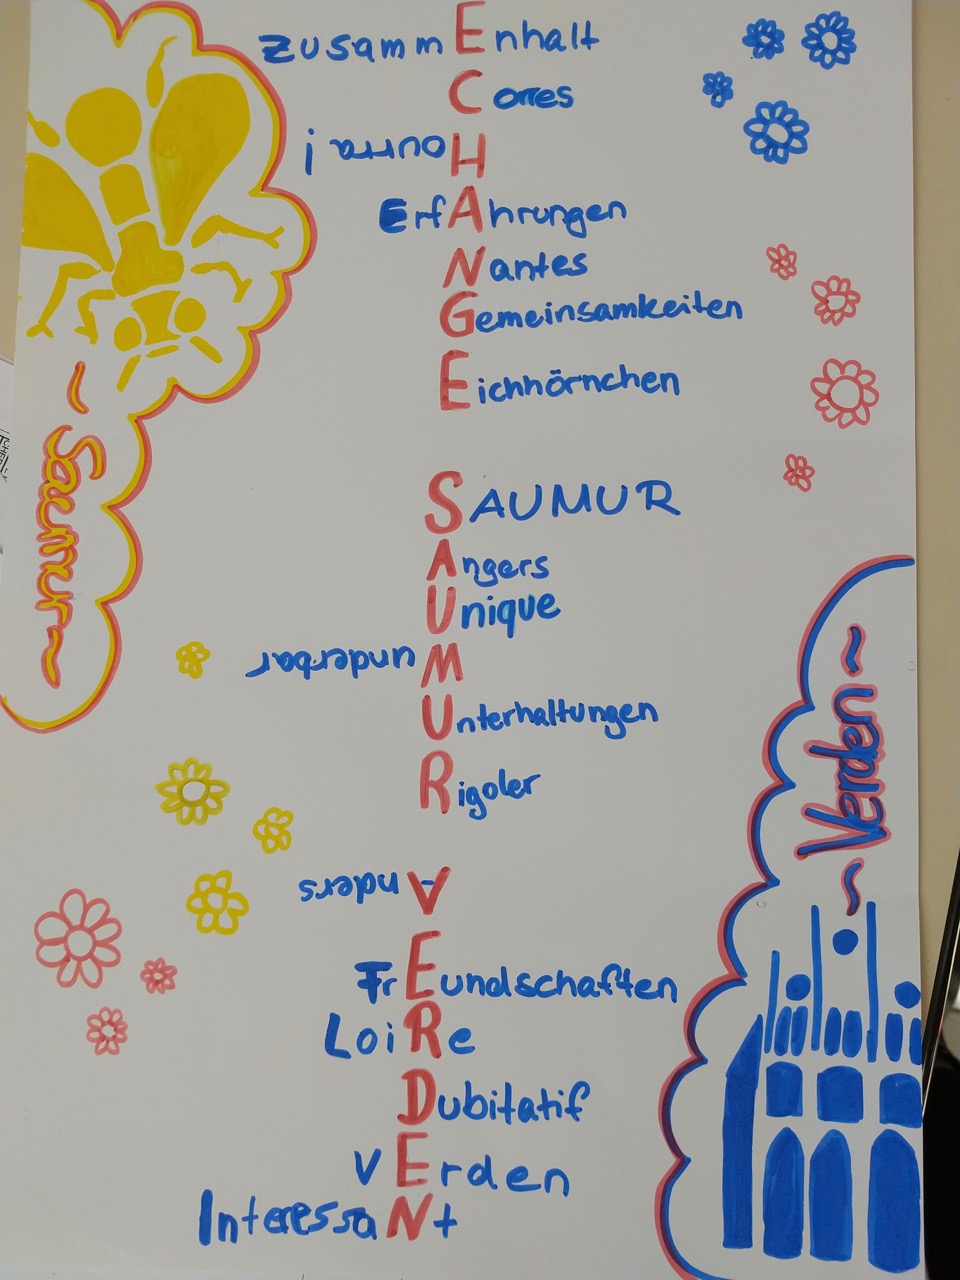 ZusammEnhalt
Corres
Hourra !
ErfAhrungen
Nantes
Gemeinsamkeiten
Eichhörnchen
~ Saumur ~
SAUMUR
Angers
Unique
Wunderbar
Unterhaltungen
Rigoler
~ Verden ~
Anders
FrEundschaften
LoiRe
Dubitatif
vErden
InteressaNt